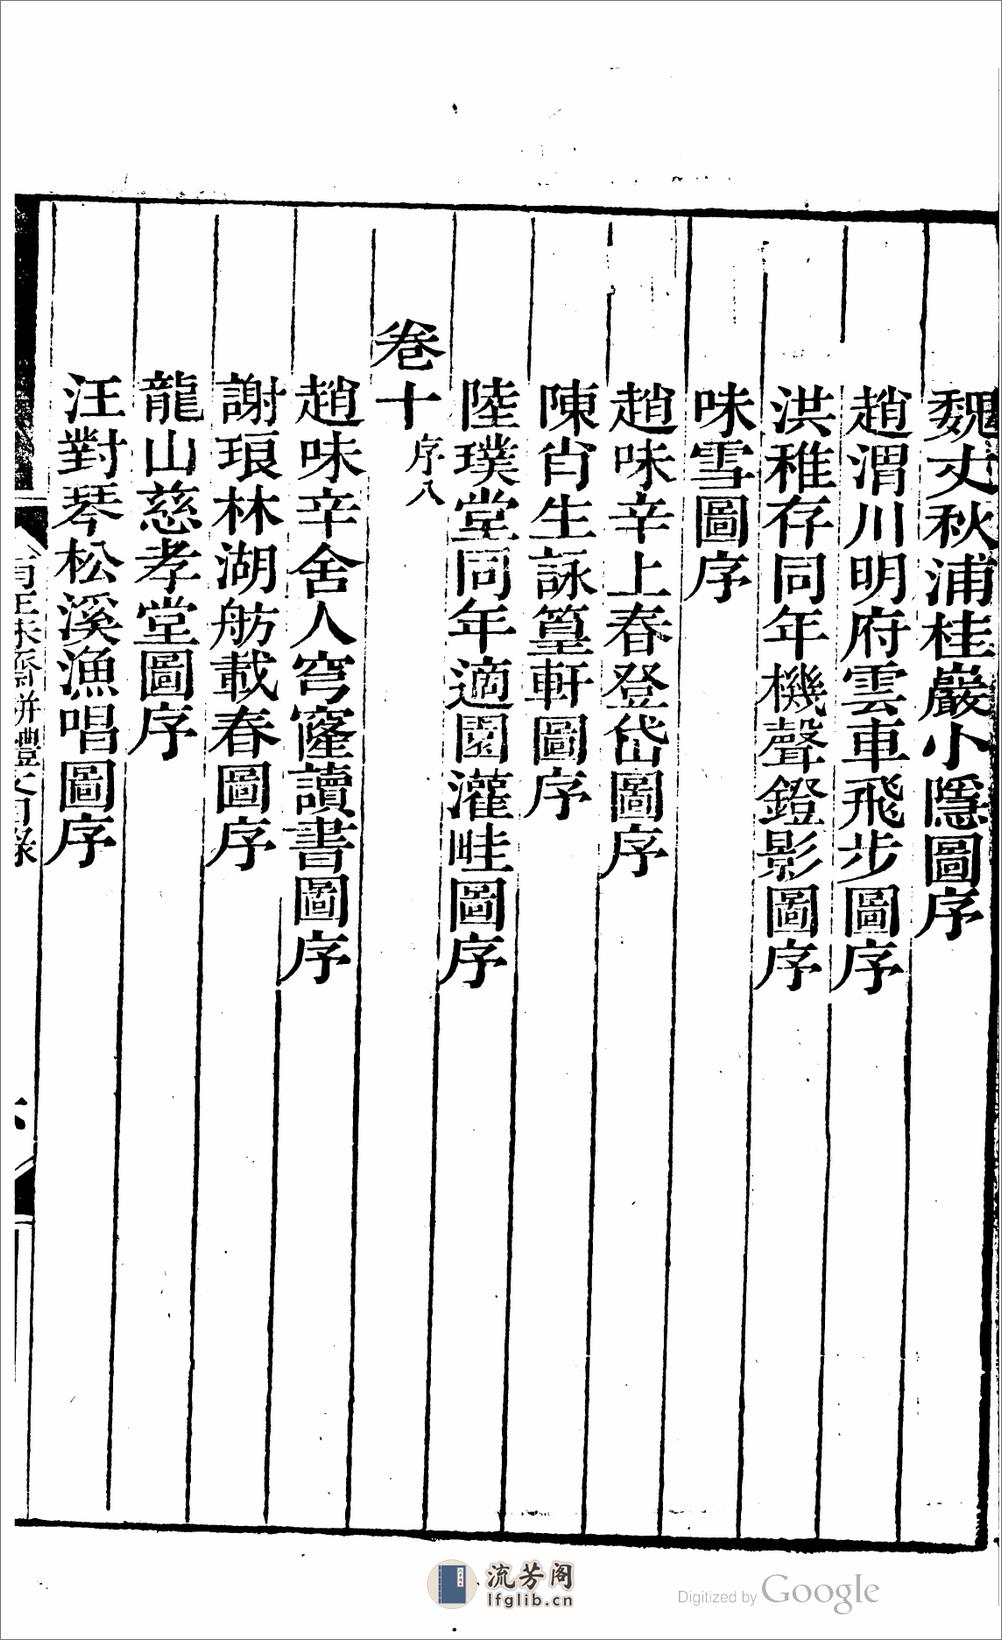 魏丈秋浦桂巖小隱圖序
趙渭川明府雲車飛步圖序
洪稚存同年機聲鐙影圖序
味雪圖序
趙味辛上春登岱圖序
陳肖生詠篁軒圖序
陸璞堂同年適園灌畦圖序
卷十 序八
趙味辛舍人穹窿讀書圖序
謝琅林湖舫載春圖序
龍山慈孝堂圖序
汪對琴松溪漁唱圖序
有正味齋駢體文目錄
六
流芳阁
lfglib.cn
Digitized by Google